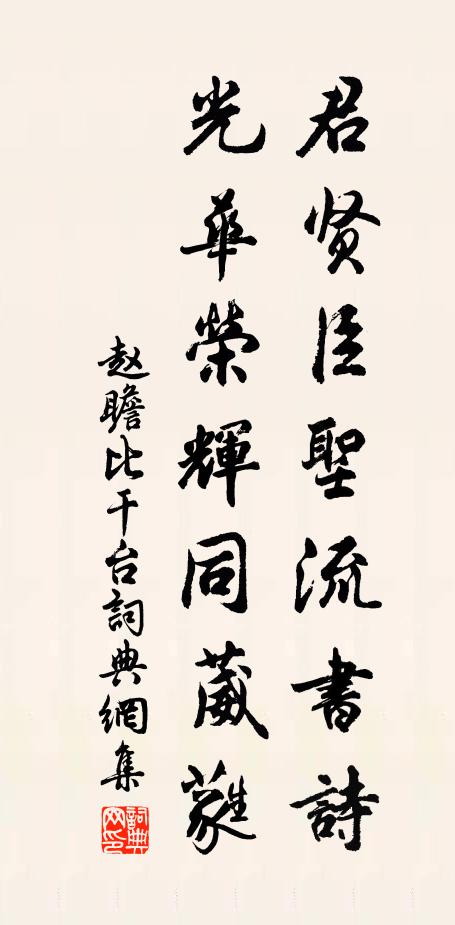 君贤臣聖流書詩
光華榮輝同葳蕤
赵瞻比干台詞典網集
詞典網印